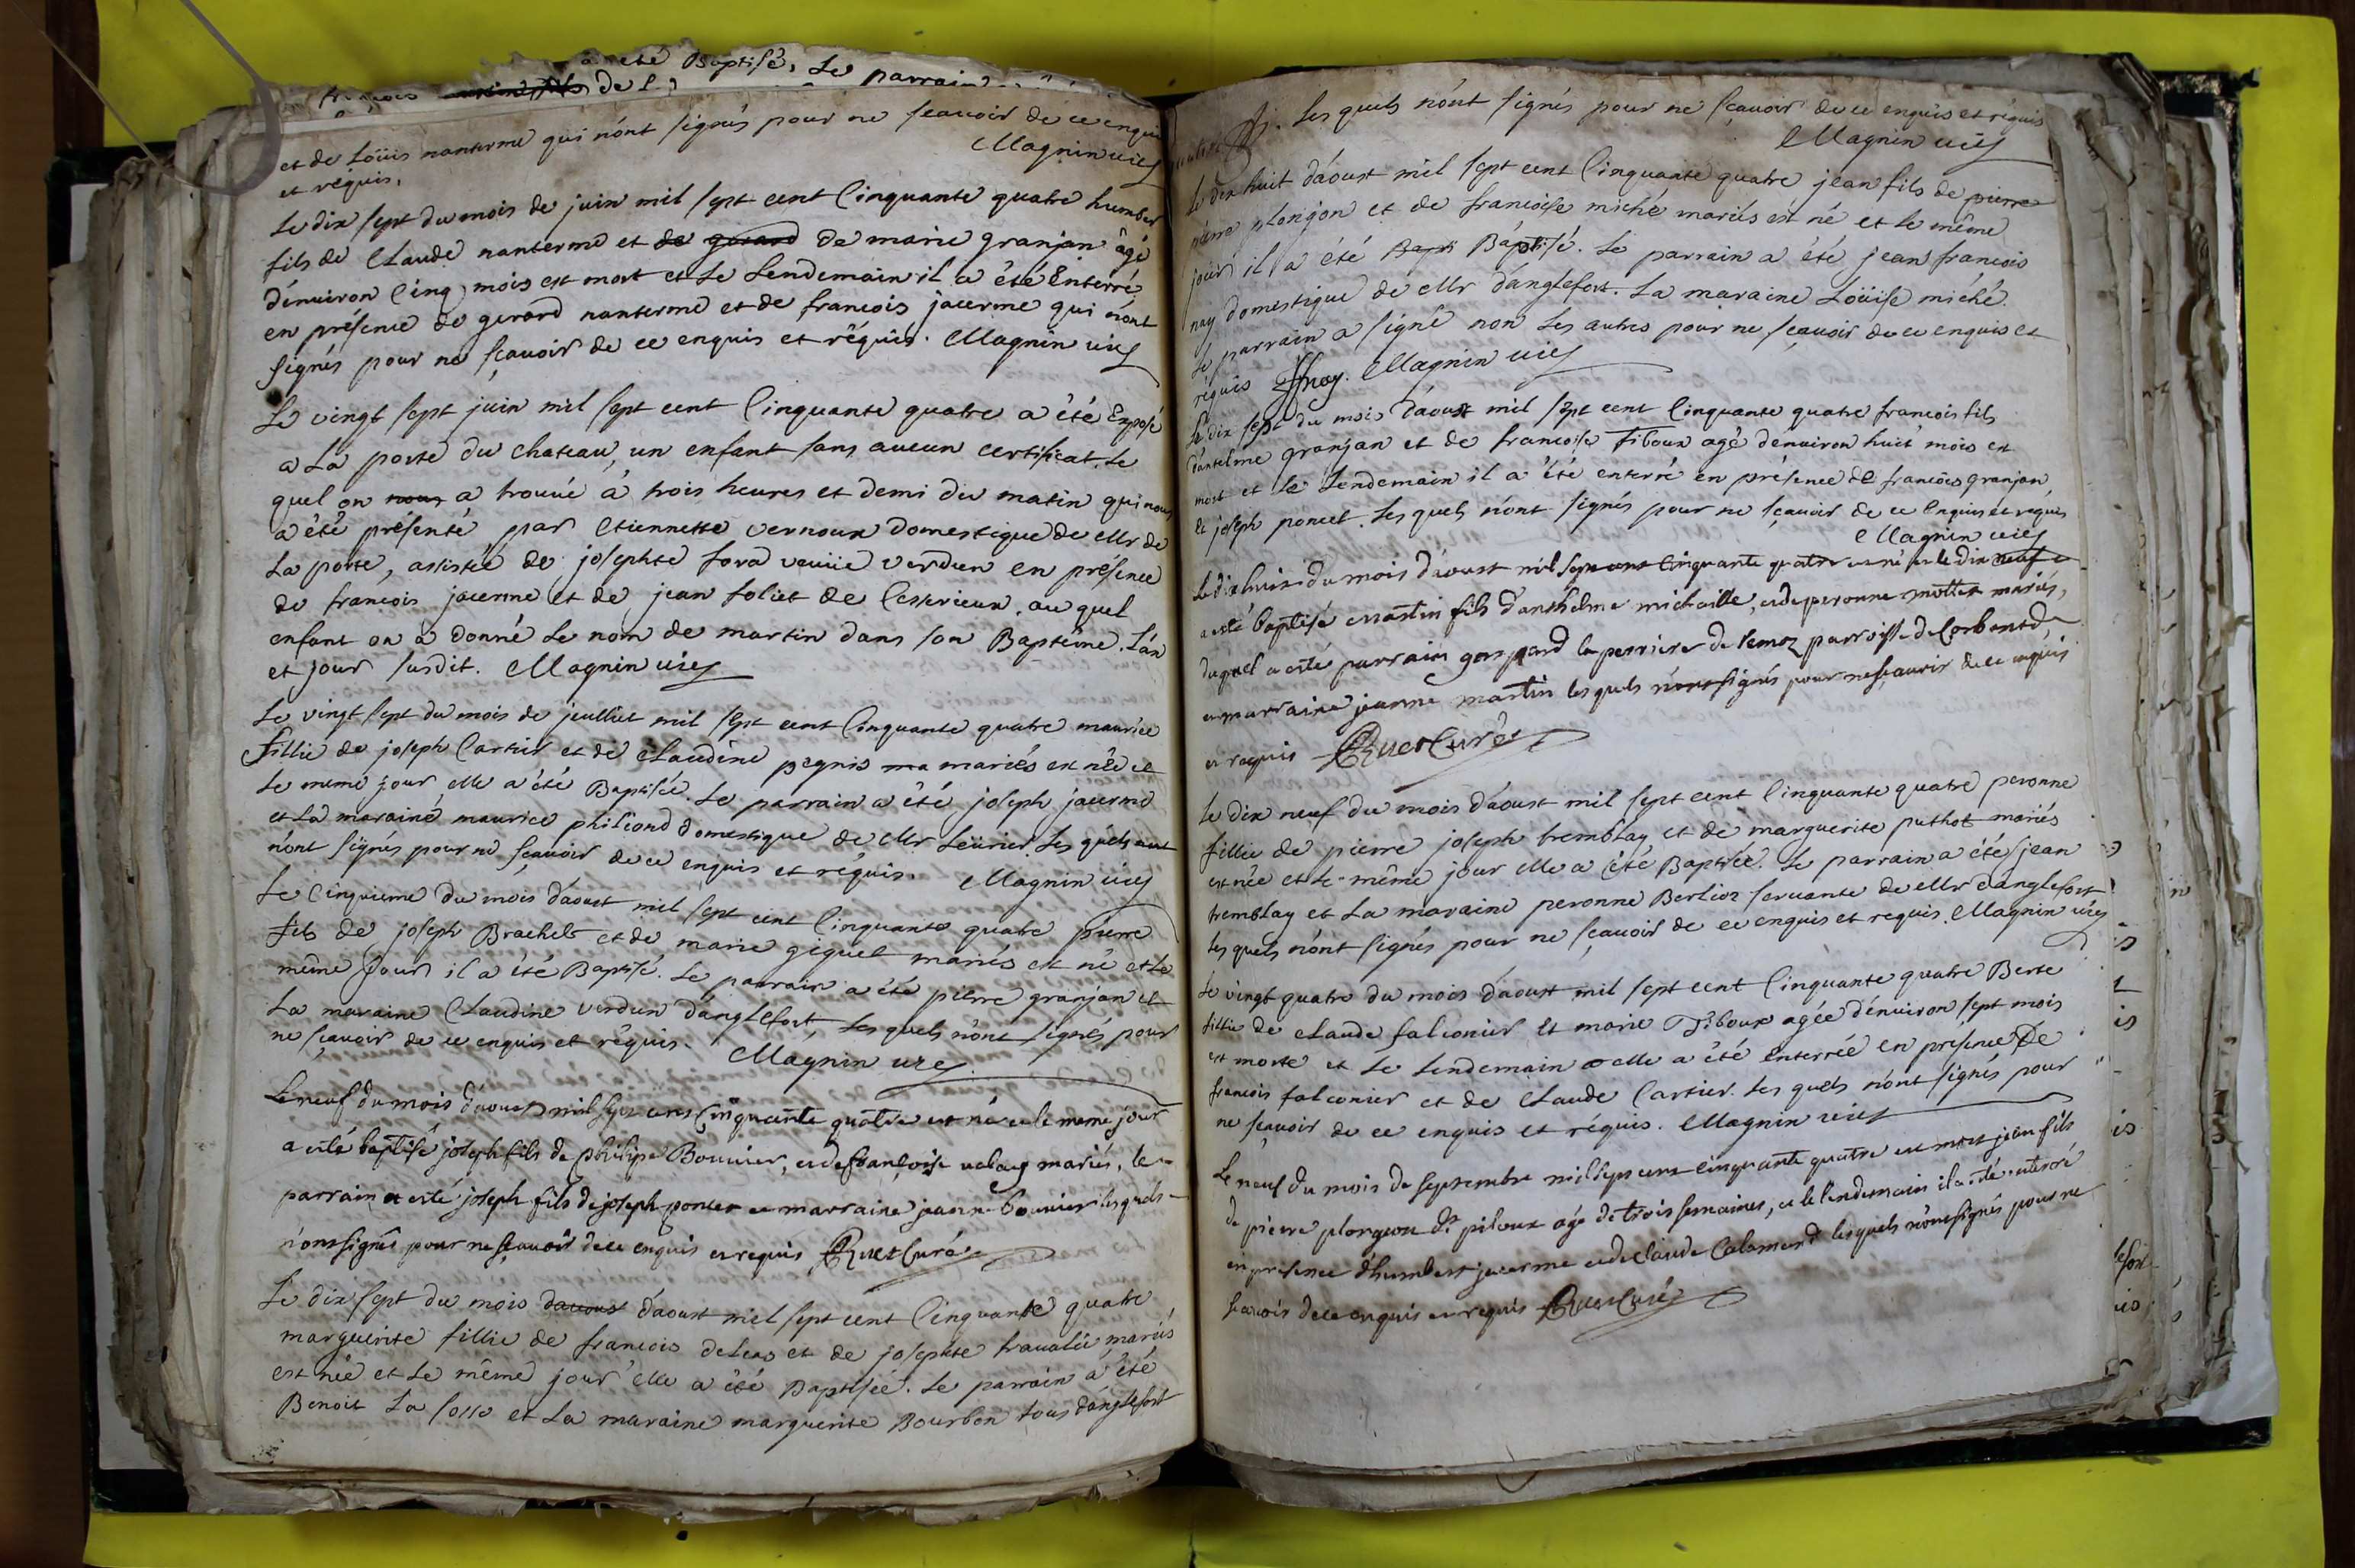 a eté Baptisé, Le parrain
et de Loüis nanterme qui nónt signés pour ne scavoir de ce enquis
et réquis. Magnin vic
Le dix sept du mois de juin mil sept cent Cinquante quatre humber
fils de Claude nanterme et de gerard de marie granjan âgé
dénviron Cinq mois est mort et Le Lendemain il a été Enterré
en présence de gerard nanterme et de francois jacerme qui nónt
signés pour ne sçavoir de ce enquis et réquis. Magnin vic
Le vingt sept juin mil sept cent Cinquante quatre a été Exposé
a La porte du chateau, un enfant sans aucun certificat, Le
quel on nous a trouvé á trois heures et demi du matin qui nous
a été présenté par Etiennette vernoux domestique de Mr de
La porte, assistée de josephte fora veuüe verdun en présence
de francois jacerme et de jean foliet de Cesserieux, au quel
enfant on a donné Le nom de martin dans son Baptême. Lán
et jour susdit. Magnin vic
Le vingt sept du mois de jeulliet mil sept cent Cinquante quatre maurice
fillie de joseph Cartier et de Claudine pegnis ma mariés est née et
Le meme jour elle a été Baptisée. Le parrain a été joseph jacerme
et La maraine maurice philiond domestique de Mr Leürier. Les quels
nónt signés pour ne sçavoir de ce enquis et réquis. Magnin vic
Le Cinquieme du mois dáoust mil sept cent Cinquante quatre pierre
fils de joseph Brachet et de marie gequet mariés est né et Le
même jour il a été Baptisé. Le parrain a été pierre granjan et
La maraine Claudine verdun dánglefort, Les quels nónt signés pour
ne sçavoir de ce enquis et réquis. Magnin vic
Le neuf du mois daoust mil sept cens Cinquante quatre est né et le meme jour
a esté baptisé joseph fils de Philipe Bouvier, et de francoise velay mariés, le
parrain a esté joseph fils de joseph poncet et marraine jeanne bouvier lesquels
nónt signés pour ne scavoir de ce enquis et requis Ruet Curé
Le dix sept du mois davoust dáoust miel sept cent Cinquante quatre
marguerite fillie de francois deleas et de josephte travalü mariés
est née et Le même jour elle a été Baptisée. Le parrain á été
Benoit La fosse et La maraine marguerite Bourbon tous dánglefort
Les quels nónt signés pour ne sçavoir de ce enquis et réquis
Magnin vic
Le dix huit dáoust mil sept cent Cinquante quatre jean fils de pierre
pierre plonjon et de francoise miché mariés est né et Le même
jour il a été Bapti Báptisé. Le parrain a été jean francois
nay domestique de Mr dánglefort. La maraine Loüise miché.
Le parrain a signé non Les autres pour ne sçavoir de ce enquis et
réquis nay. Magnin vic
Le dix sept du mois dáoust mil sept cent Cinquante quatre francois fils
dántelme granjan et de francoise Tiboux agé dénviron huit mois est
mort et Le Lendemain il a été enterré en présence de francois granjan
et joseph poncet. Les quels nónt signés pour ne sçavoir de ce Enquis et réquis
Magnin vic
Le dix huit du mois dáoust mil sept cent Cinquante quatre est né et le dix neuf
a esté baptisé martin fils d'anthelme michaille, et de peronne mottet mariés,
duquel a esté parrain gaspard la perriere de Remoz parroisse de Corbonod,
et marraine jeanne martin lesquels nónt signés pour ne scavoir de ce enquis
et requis Ruet Curé
Le dix neuf du mois dáoust mil sept cent Cinquante quatre peronne
fillie de pierre joseph tremblay et de marguerite puthot mariés
est née et Le même jour elle a été Baptisée. Le parrain a été jean
tremblay et La maraine peronne Berlioz servante de Mr danglefort
les quels nónt signés pour ne sçavoir de ce enquis et requis. Magnin vic
Le vingt quatre du mois dáoust mil sept cent Cinquante quatre Berte
fillie de Claude falconier et marie Tiboux agée dénviron sept mois
est morte et Le Lendemain elle a été enterrée en présence De
francois falconier et de Claude Cartier. Les quels nónt signés pour
ne sçavoir de ce enquis et réquis. Magnin vic
Le neuf du mois de septembre mil sept cens cinquante quatre est mort jean fils
de pierre plongeon dt piloux agé de trois semaines, et le lendemain il a été enterré
en presence d'humbert jacerme et de Claude Calamard lesquels nónt signés pour ne
scavoir de ce enquis et requis Ruet Curé